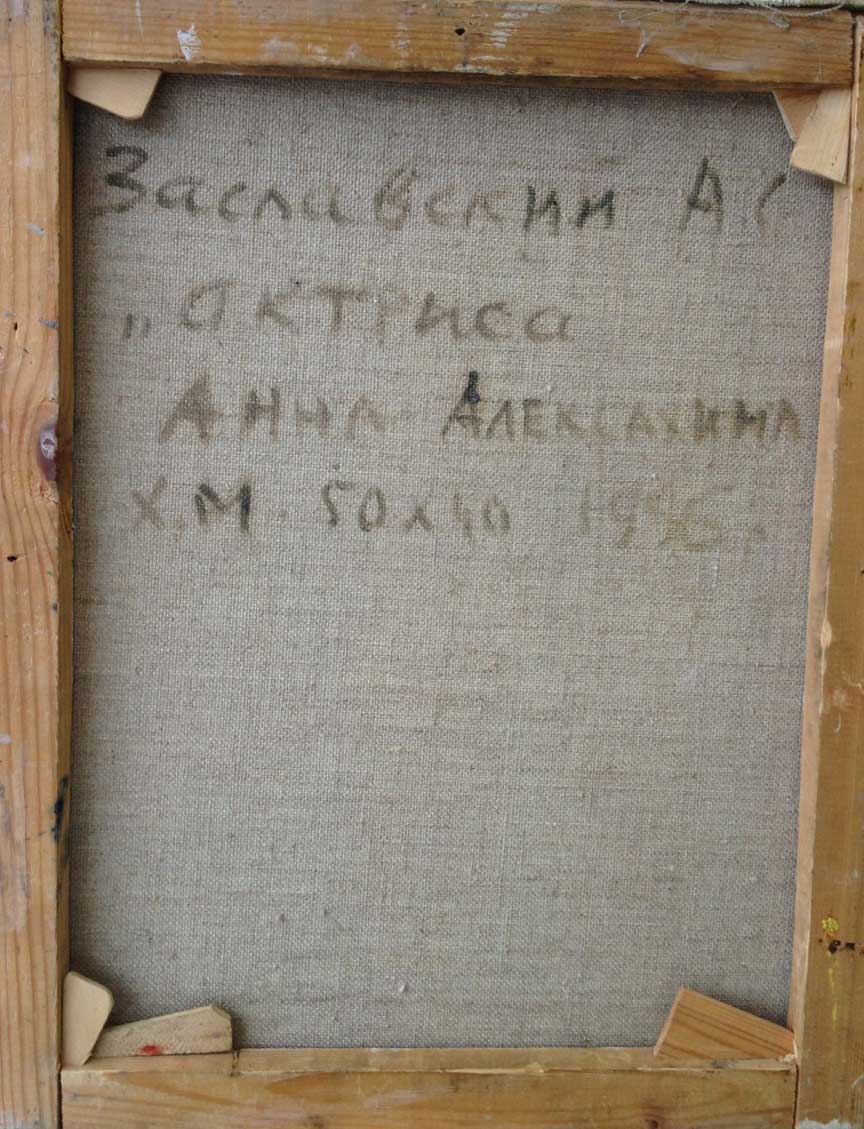 Заславский А С
„актриса
Анна Алексахина
х.м. 50х40